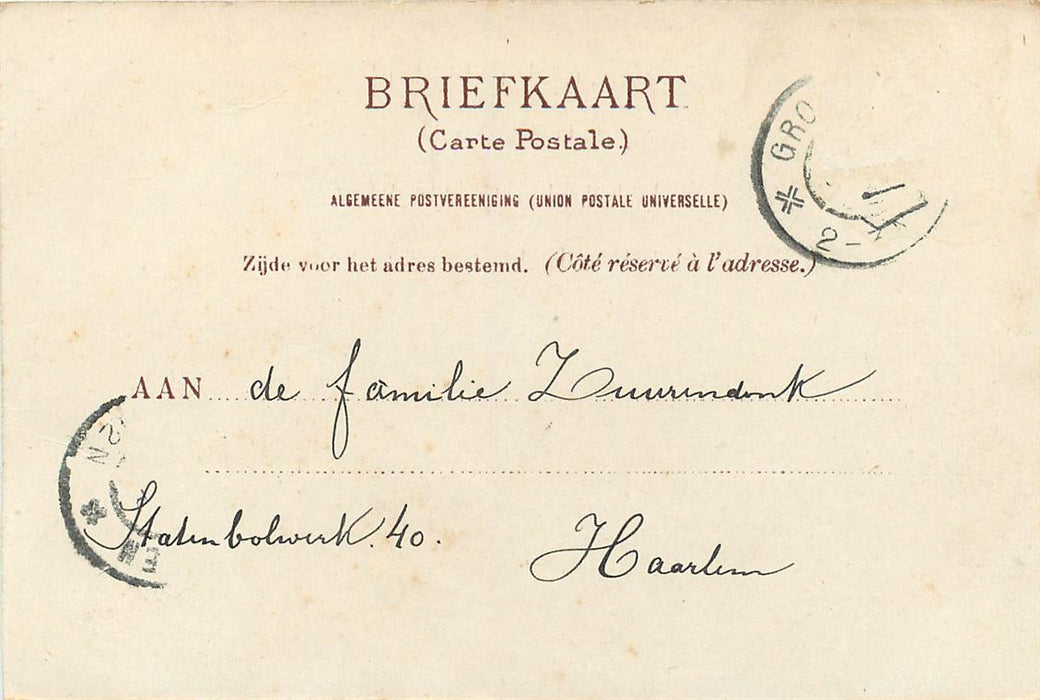 BRIEFKAART
(Carte Postale.)
ALGEMEENE POSTVEREENIGING (UNION POSTALE UNIVERSELLE)
Zijde voor het adres bestemd. (Côté réservé à l'adresse.)
GRO
2-
AAN de familie Zuurendonk
Statenbolwerk. 40.
Haarlem